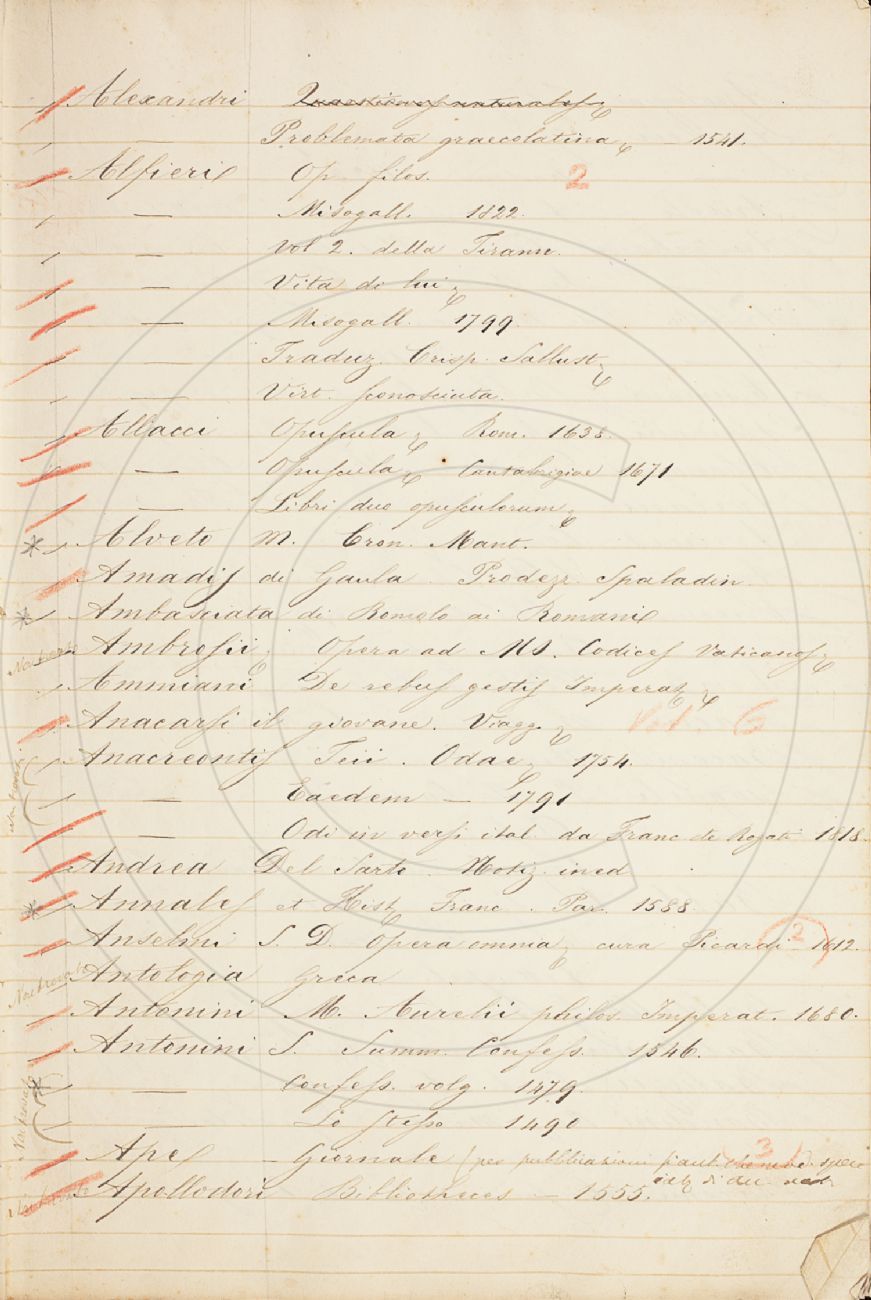 Alexandri Quaestiones naturales
— Problemata graecolatina — 1541.
Alfieri Op. filos. 2
— Misogall. 1822.
— Vol 2. della Tirann.
— Vita di lui
— Misogall. 1799.
— Traduz. Crisp. Sallust.
— Virt. sconosciuta.
Allacci Opuscula Rom. 1638.
— Opuscula Cantabrigiae 1671
— Libri duo opusculorum
Alveto M. Cron. Mant.
Amadis di Gaula. Prodezz. Spaladin.
Ambasciata di Romolo ai Romani
Ambrosii Opera ad MS. Codices Vaticanos
Ammiani De rebus gestis Imperat.
Anacarsi il giovane. Viagg. Vol. 6
Anacreontis Teii. Odae 1754.
— Eaedem — 1791
— Odi in versi ital. da Franc. de Rogati 1818.
Andrea Del Sarto. Notiz. ined
Annales et Hist. Franc. Par. 1588.
Anselmi S. D. Opera omnia cura Picardi 1612. 2
Antologia Greca
Antonini M. Aurelii philos. Imperat. 1680.
Antonini S. Summ. Confess. 1546.
— Confess. volg. 1479.
— Lo stesso 1490
Ape — Giornale (per pubblicazioni 3
Apollodori Bibliotheces — 1555.